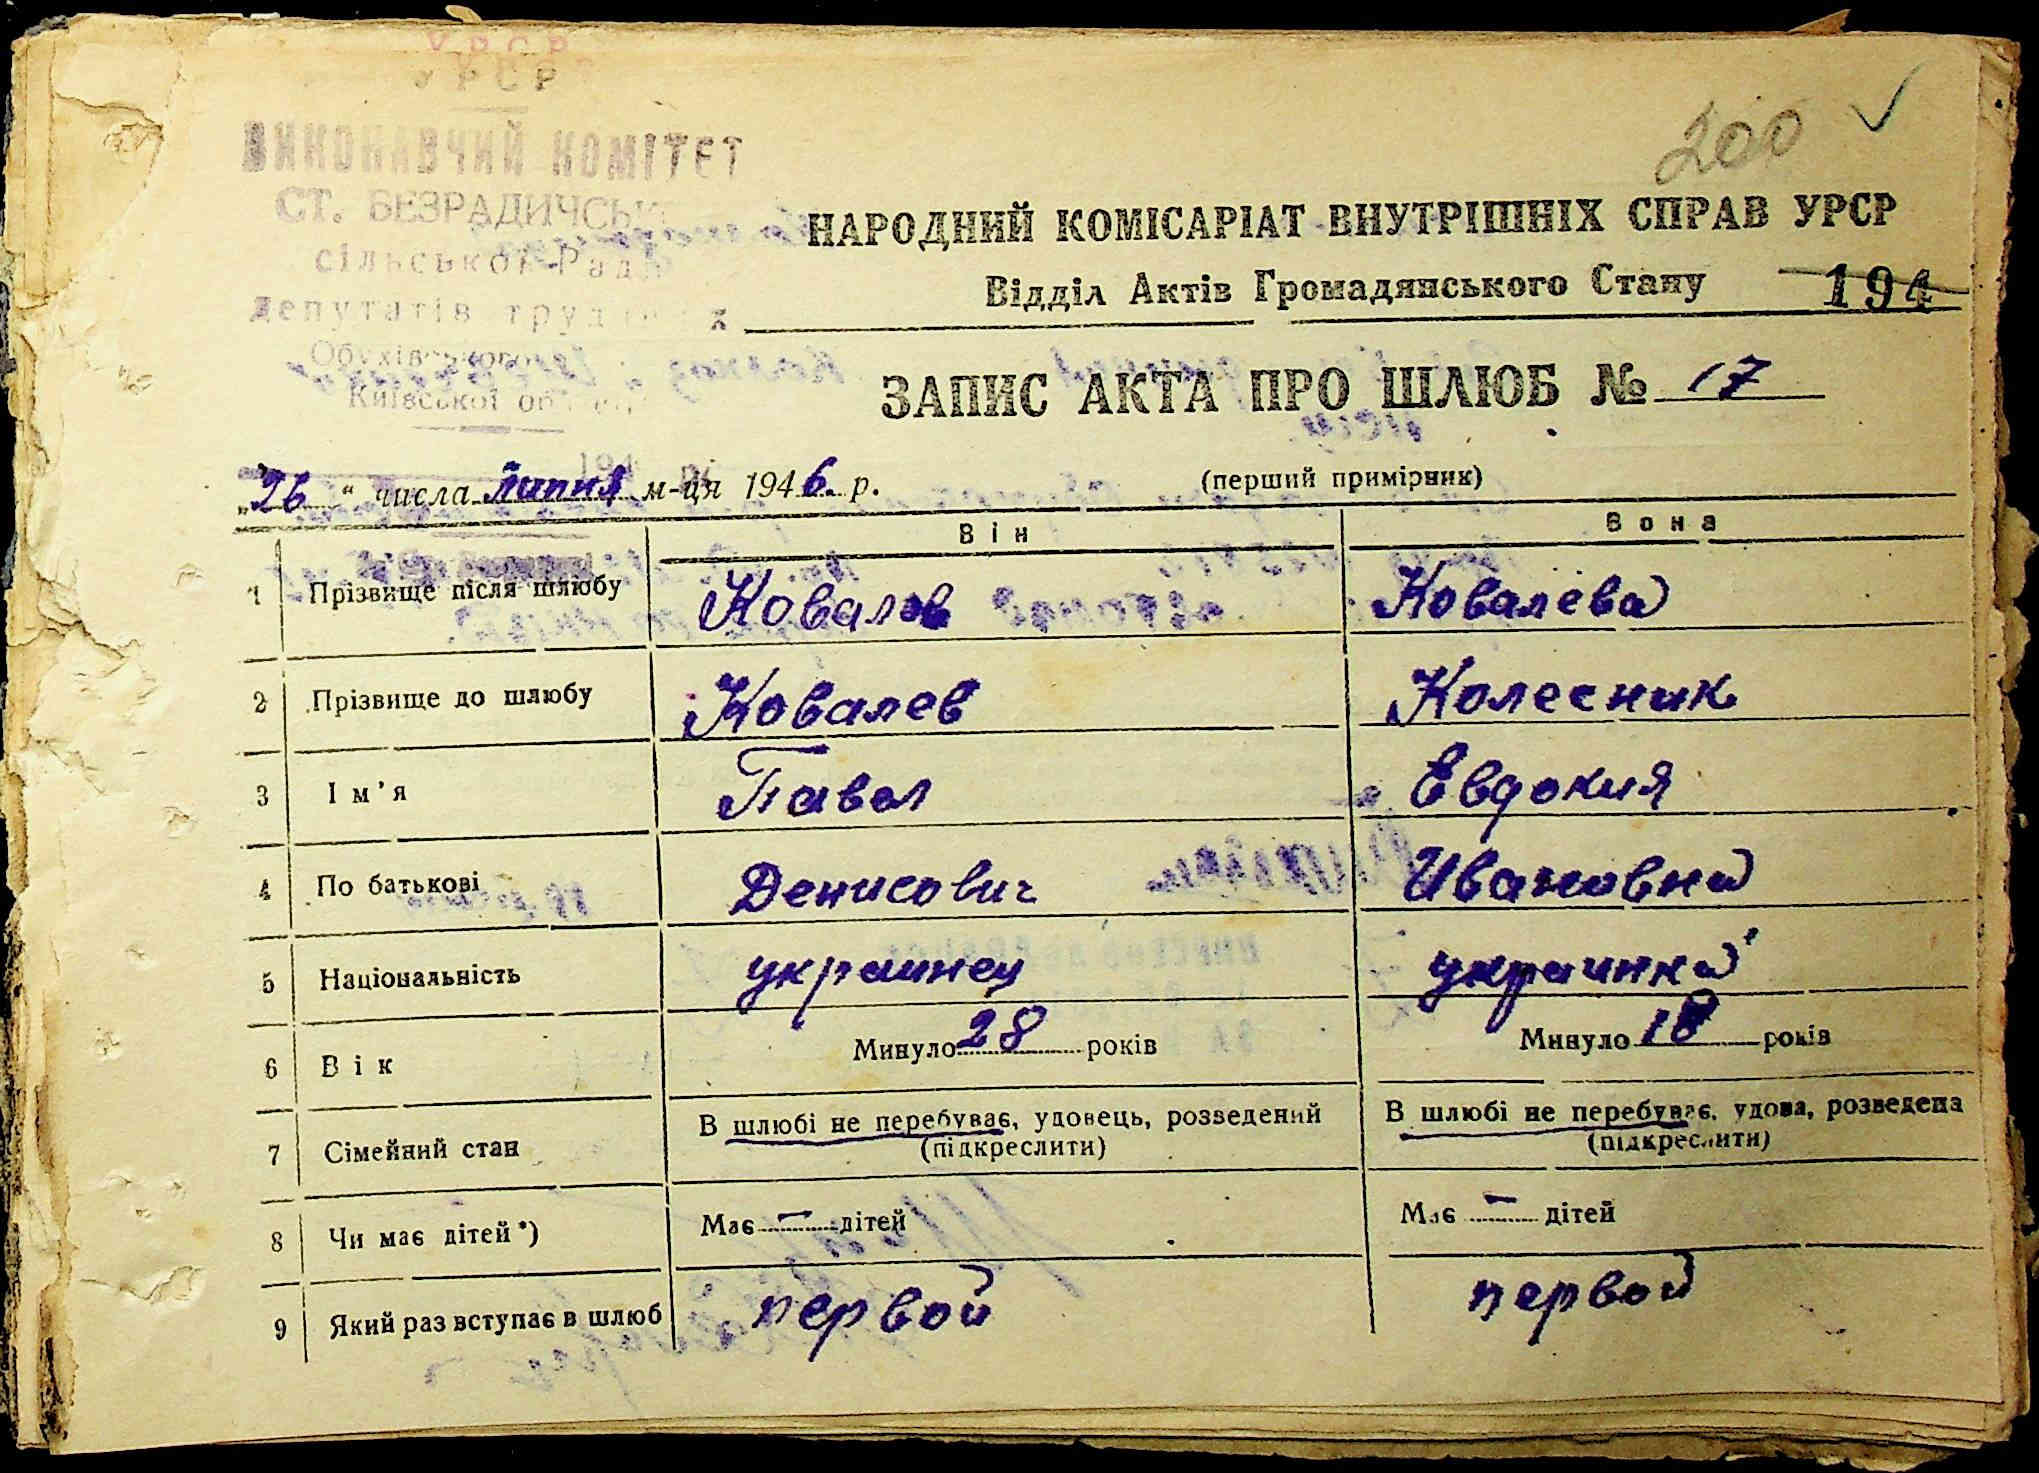 УРСР
УРСР
ВИКОНАВЧИЙ КОМІТЕТ
СТ. БЕЗРАДИЧСЬК
сільської Ради
депутатів трудящих
Обухівського
Київської
200
НАРОДНИЙ КОМІСАРІАТ ВНУТРІШНІХ СПРАВ УРСР
Відділ Актів Громадянського Стану 194
ЗАПИС АКТА ПРО ШЛЮБ № 17
„26" числа липня м-ця 1946 р.
(перший примірник)
Він Вона
1 Прізвище після шлюбу Ковалев Ковалева
2 Прізвище до шлюбу Ковалев Колесник
3 Ім'я Павел Евдокия
4 По батькові Денисович Ивановна
5 Національність украинец украинка
6 Вік Минуло 28 років Минуло 18 років
7 Сімейний стан В шлюбі не перебуває, удовець, розведений (підкреслити) В шлюбі не перебуває, удова, розведена (підкреслити)
8 Чи має дітей*) Має — дітей Має — дітей
9 Який раз вступає в шлюб первой первой